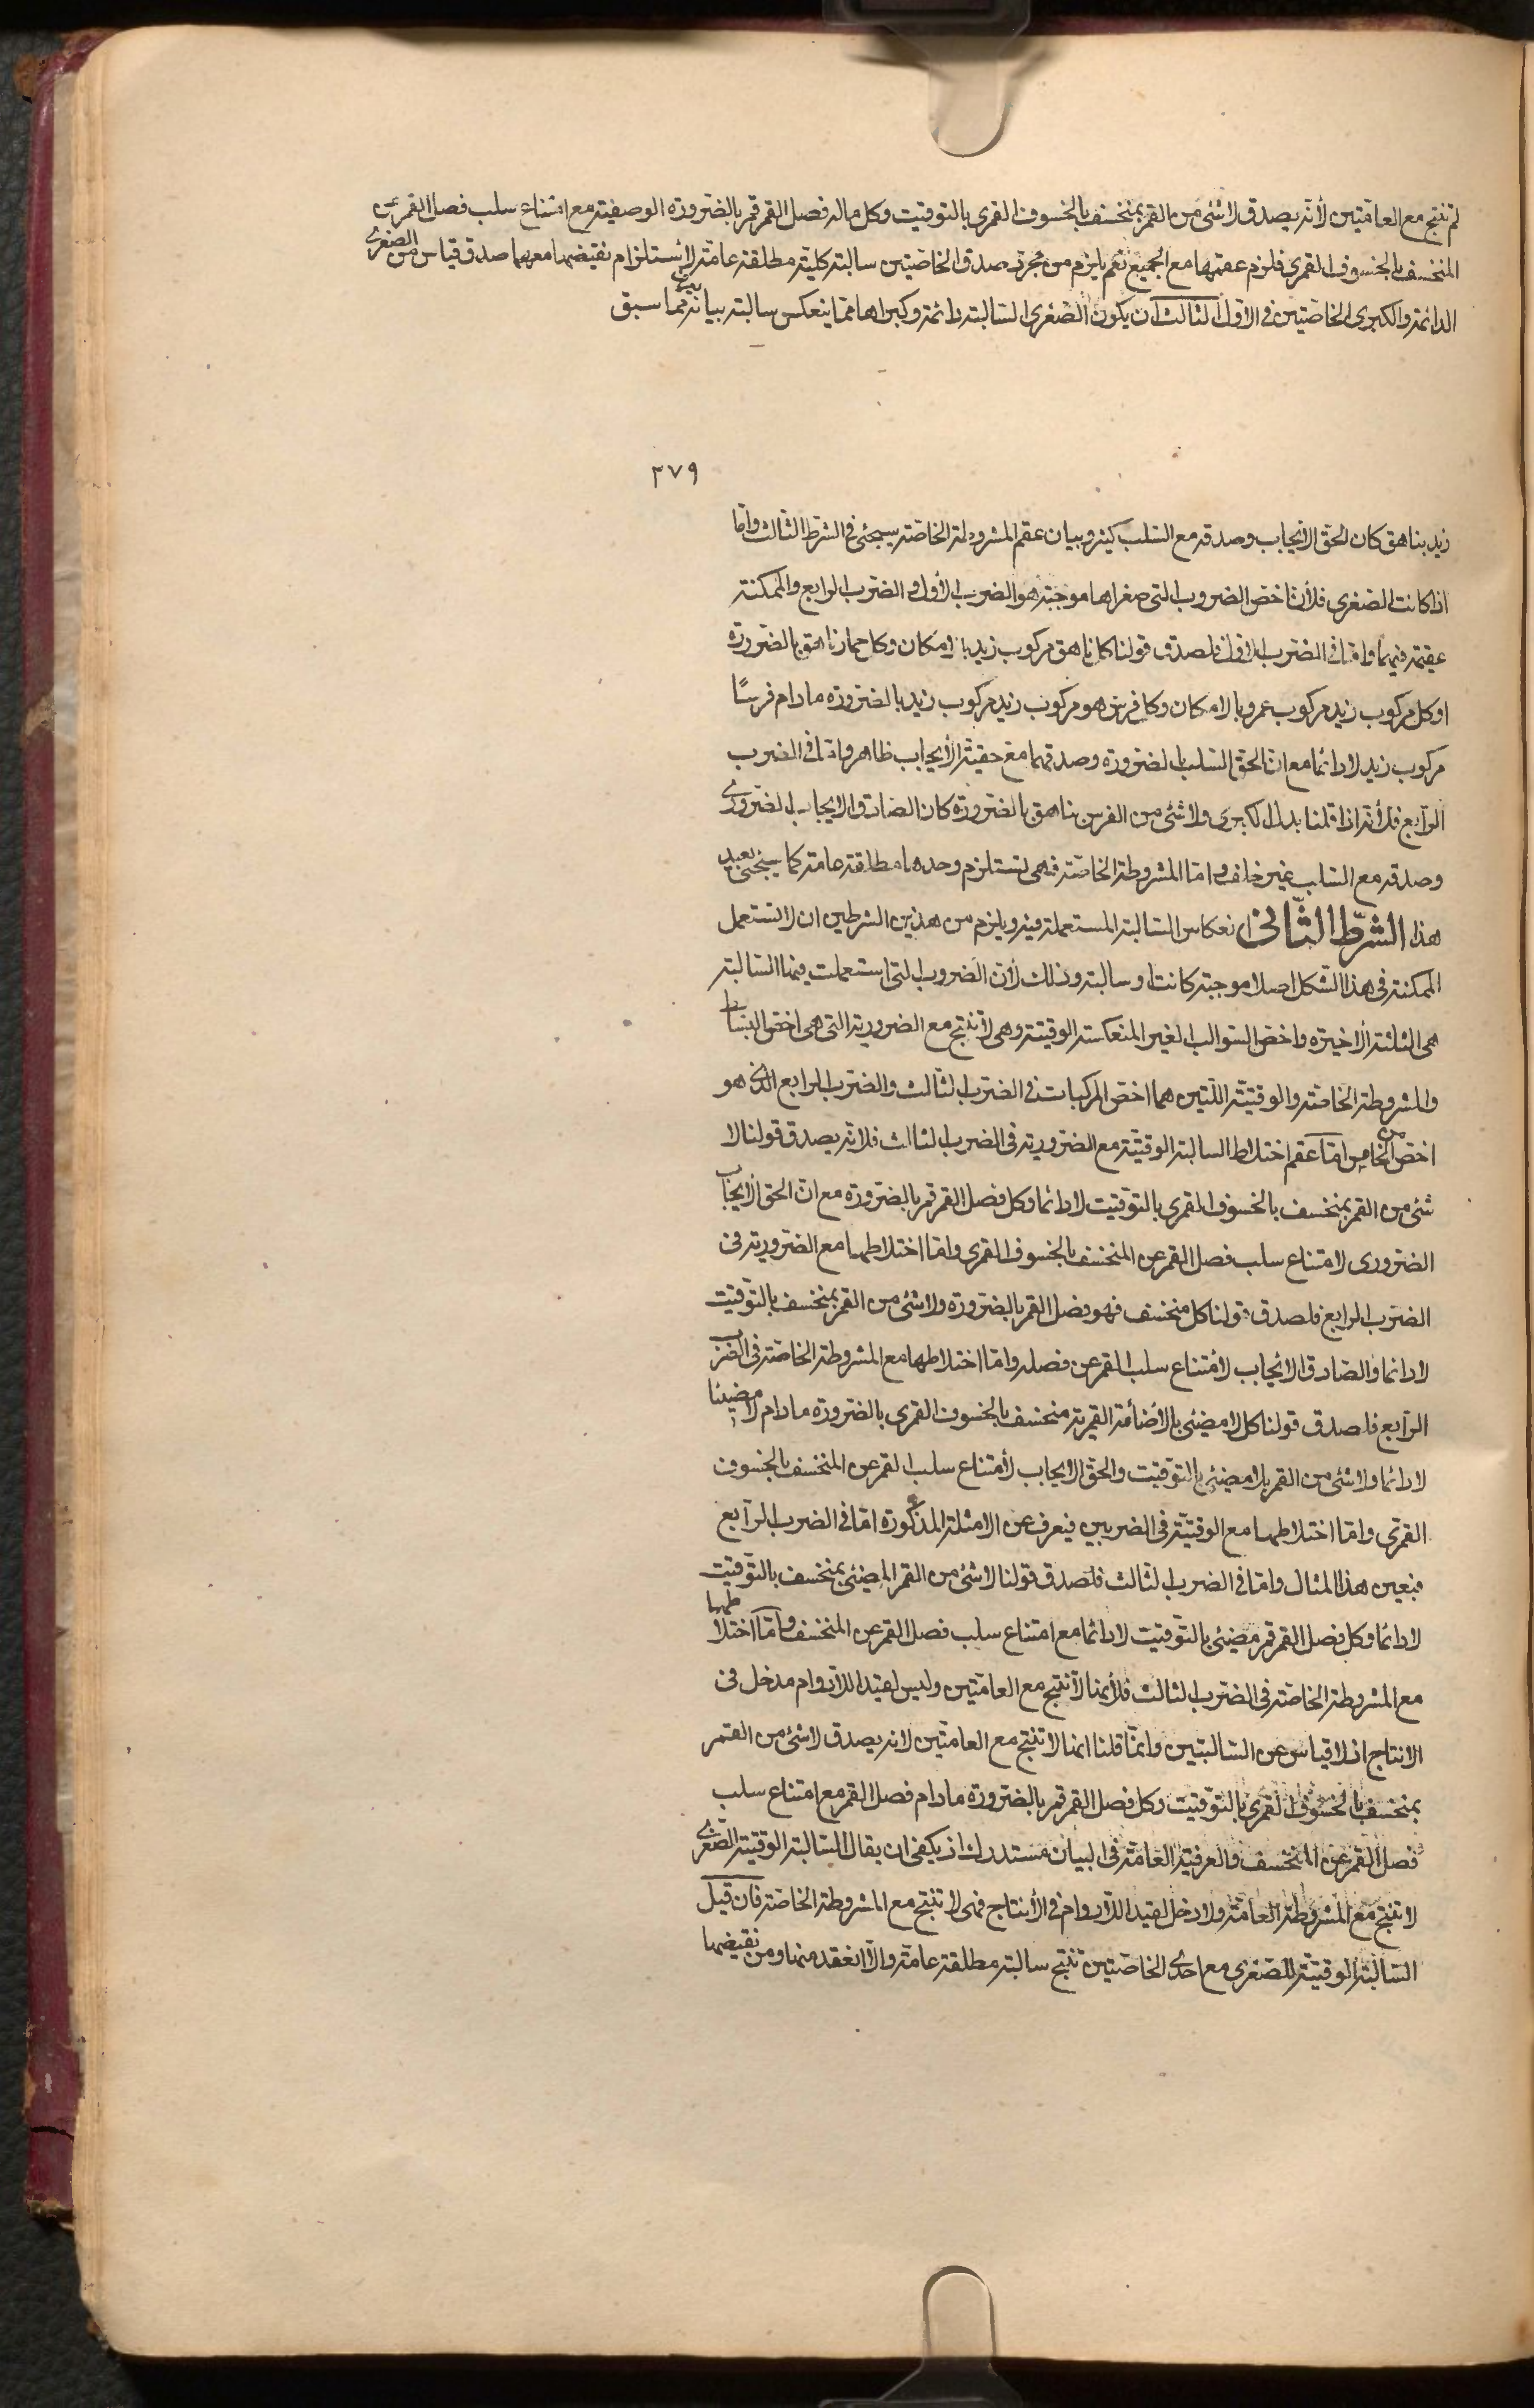 لم تنتج مع العامتين لأنه يصدق لا شئ من القمر بمنخسف بالخسوف القمرى بالتوقيت وكل ماله فصل القمر قمر بالضرورة الوصفية مع امتناع سلب فصل القمر عن
المنخسف بالخسوف القمرى فلزم عقمها مع الجميع نعم يلزم من مجرد صدق الخاصتين سالبة كلية مطلقة عامة لاستلزام نقيضها معهما صدق قياس من الصغرى
الدائمة والكبرى الخاصتين فى الاول الثالث ان يكون الصغرى السالبة دائمة وكبراها مما ينعكس سالبة بيانه مما سبق
٣٧٩
زيد بناهق كان الحق الايجاب وصدقه مع السلب كثير وبيان عقم المشروطة الخاصة سيجئ فى الشرط الثالث واما
اذا كانت الصغرى فلأن اخص الضروب التى صغراها موجبة هو الضرب الأول و الضرب الرابع والممكنة
عقيمة فيهما واما فى الضرب الاول فلصدق قولنا كل ناهق مركوب زيد بالامكان وكل حمار ناهق بالضرورة
او كل مركوب زيد مركوب عمرو بالامكان وكل فرس هو مركوب زيد مركوب زيد بالضرورة مادام فرسًا
مركوب زيد لا دائما مع ان الحق السلب بالضرورة وصدقهما مع حقية الأيجاب ظاهر واما فى الضرب
الرابع فلأنه اذا قلنا بدل الكبرى ولا شئ من الفرس بناهق بالضرورة كان الصادق الايجاب الضرورى
وصدقه مع السلب غير خلف واما المشروطة الخاصة فهى تستلزم وحدها مطلقة عامة كما سيجئ بعيد
هذا الشرط الثانى انعكاس السالبة المستعملة فيه ويلزم من هذين الشرطين ان لا تستعمل
الممكنة فى هذا الشكل اصلا موجبة كانت او سالبة وذلك لأن الضروب التى استعملت فيها السالبة
هى الثلثة الأخيرة واخص السوالب الغير المنعكسة الوقتية وهى لا تنتج مع الضرورية التى هى اخص البسائط
والمشروطة الخاصة والوقتية اللتين هما اخص المركبات فى الضرب الثالث والضرب الرابع الذى هو
اخص من الخامس اما عقم اختلاط السالبة الوقتية مع الضرورية فى الضرب الثالث فلانه يصدق قولنا لا
شئ من القمر بمنخسف بالخسوف القمرى بالتوقيت لا دائما وكل فصل القمر قمر بالضرورة مع ان الحق الأيجاب
الضرورى لامتناع سلب فصل القمر عن المنخسف بالخسوف القمرى واما اختلاطها مع الضرورية فى
الضرب الرابع فلصدق قولنا كل منخسف فهو فصل القمر بالضرورة ولا شئ من القمر بمنخسف بالتوقيت
لا دائما والصادق الايجاب لأمتناع سلب القمر عن فصله واما اختلاطها مع المشروطة الخاصة فى الضرب
الرابع فلصدق قولنا كل لا مضيئ بالأضائة القمرية منخسف بالخسوف القمرى بالضرورة مادام لا مضيئا
لا دائما ولا شئ من القمر بلا مضيئ بالتوقيت والحق الايجاب لأمتناع سلب القمر عن المنخسف بالخسوف
القمرى واما اختلاطها مع الوقتية فى الضربين فيعرف من الامثلة المذكورة اما فى الضرب الرابع
فبعين هذا المثال واما فى الضرب الثالث فلصدق قولنا لا شئ من القمر المضيئ بمنخسف بالتوقيت
لا دائما وكل فصل القمر قمر مضيئ بالتوقيت لا دائما مع امتناع سلب فصل القمر عن المنخسف واما اختلاطها
مع المشروطة الخاصة فى الضرب الثالث فلأنها لا تنتج مع العامتين وليس لقيد اللادوام مدخل فى
الانتاج اذ لا قياس عن السالبتين وانما قلنا انها لا تنتج مع العامتين لانه يصدق لا شئ من القمر
بمنخسف بالخسوف القمرى بالتوقيت وكل فصل القمر قمر بالضرورة مادام فصل القمر مع امتناع سلب
فصل القمر عن المنخسف والعرفية العامة فى البيان مستدرك اذ يكفى ان يقال السالبة الوقتية الصغرى
لا تنتج مع المشروطة العامة ولا دخل لقيد اللادوام فى الأنتاج فهى لا تنتج مع المشروطة الخاصة فان قيل
السالبة الوقتية الصغرى مع احدى الخاصتين تنتج سالبة مطلقة عامة والا انعقد منها ومن نقيضها